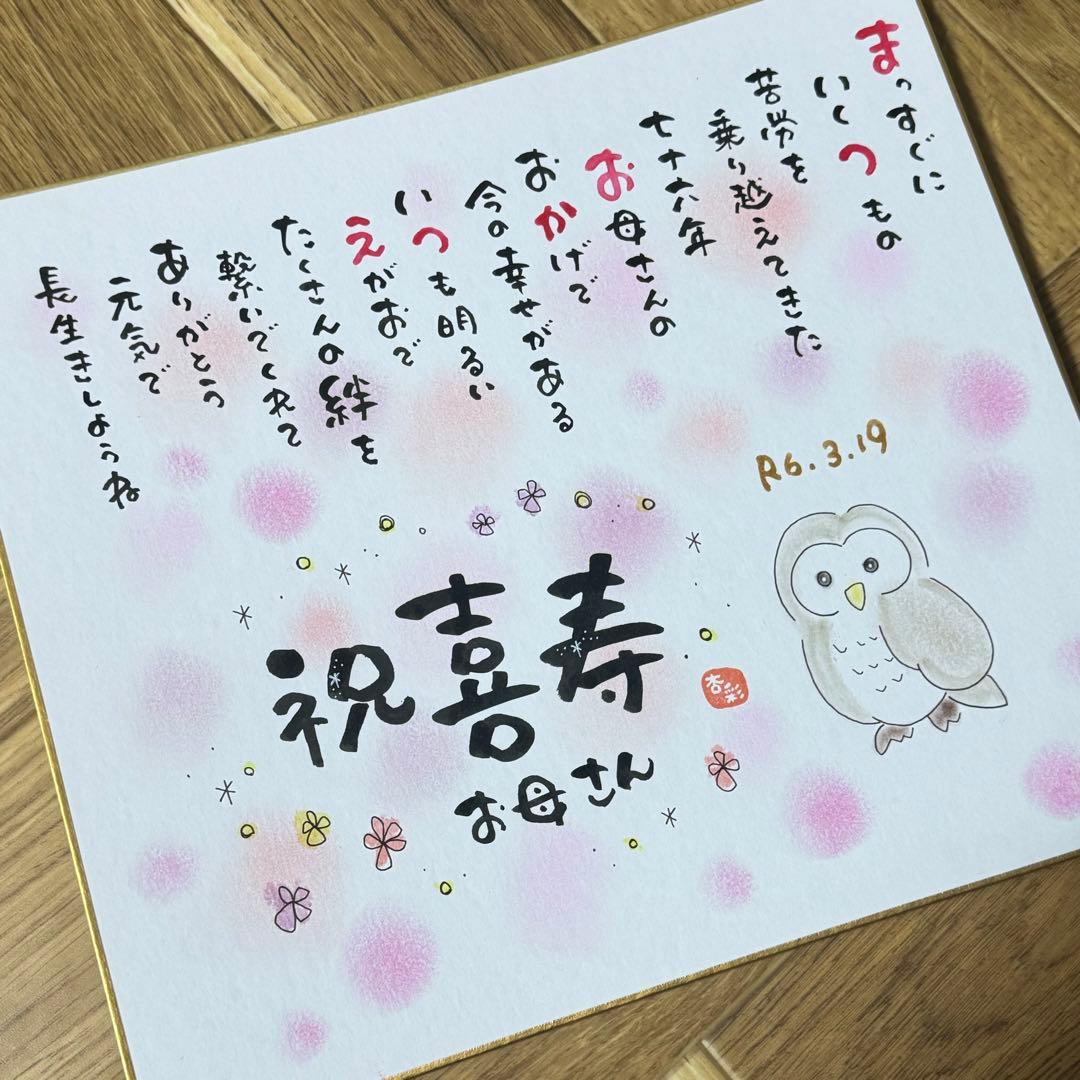 まっすぐに
いくつもの
苦労を
乗り越えてきた
七十六年
お母さんの
おかげで
今の幸せがある
いつも明るい
えがおで
たくさんの絆を
繋いでくれて
ありがとう
元気で
長生きしようね
R6.3.19
祝喜寿
お母さん
杏彩